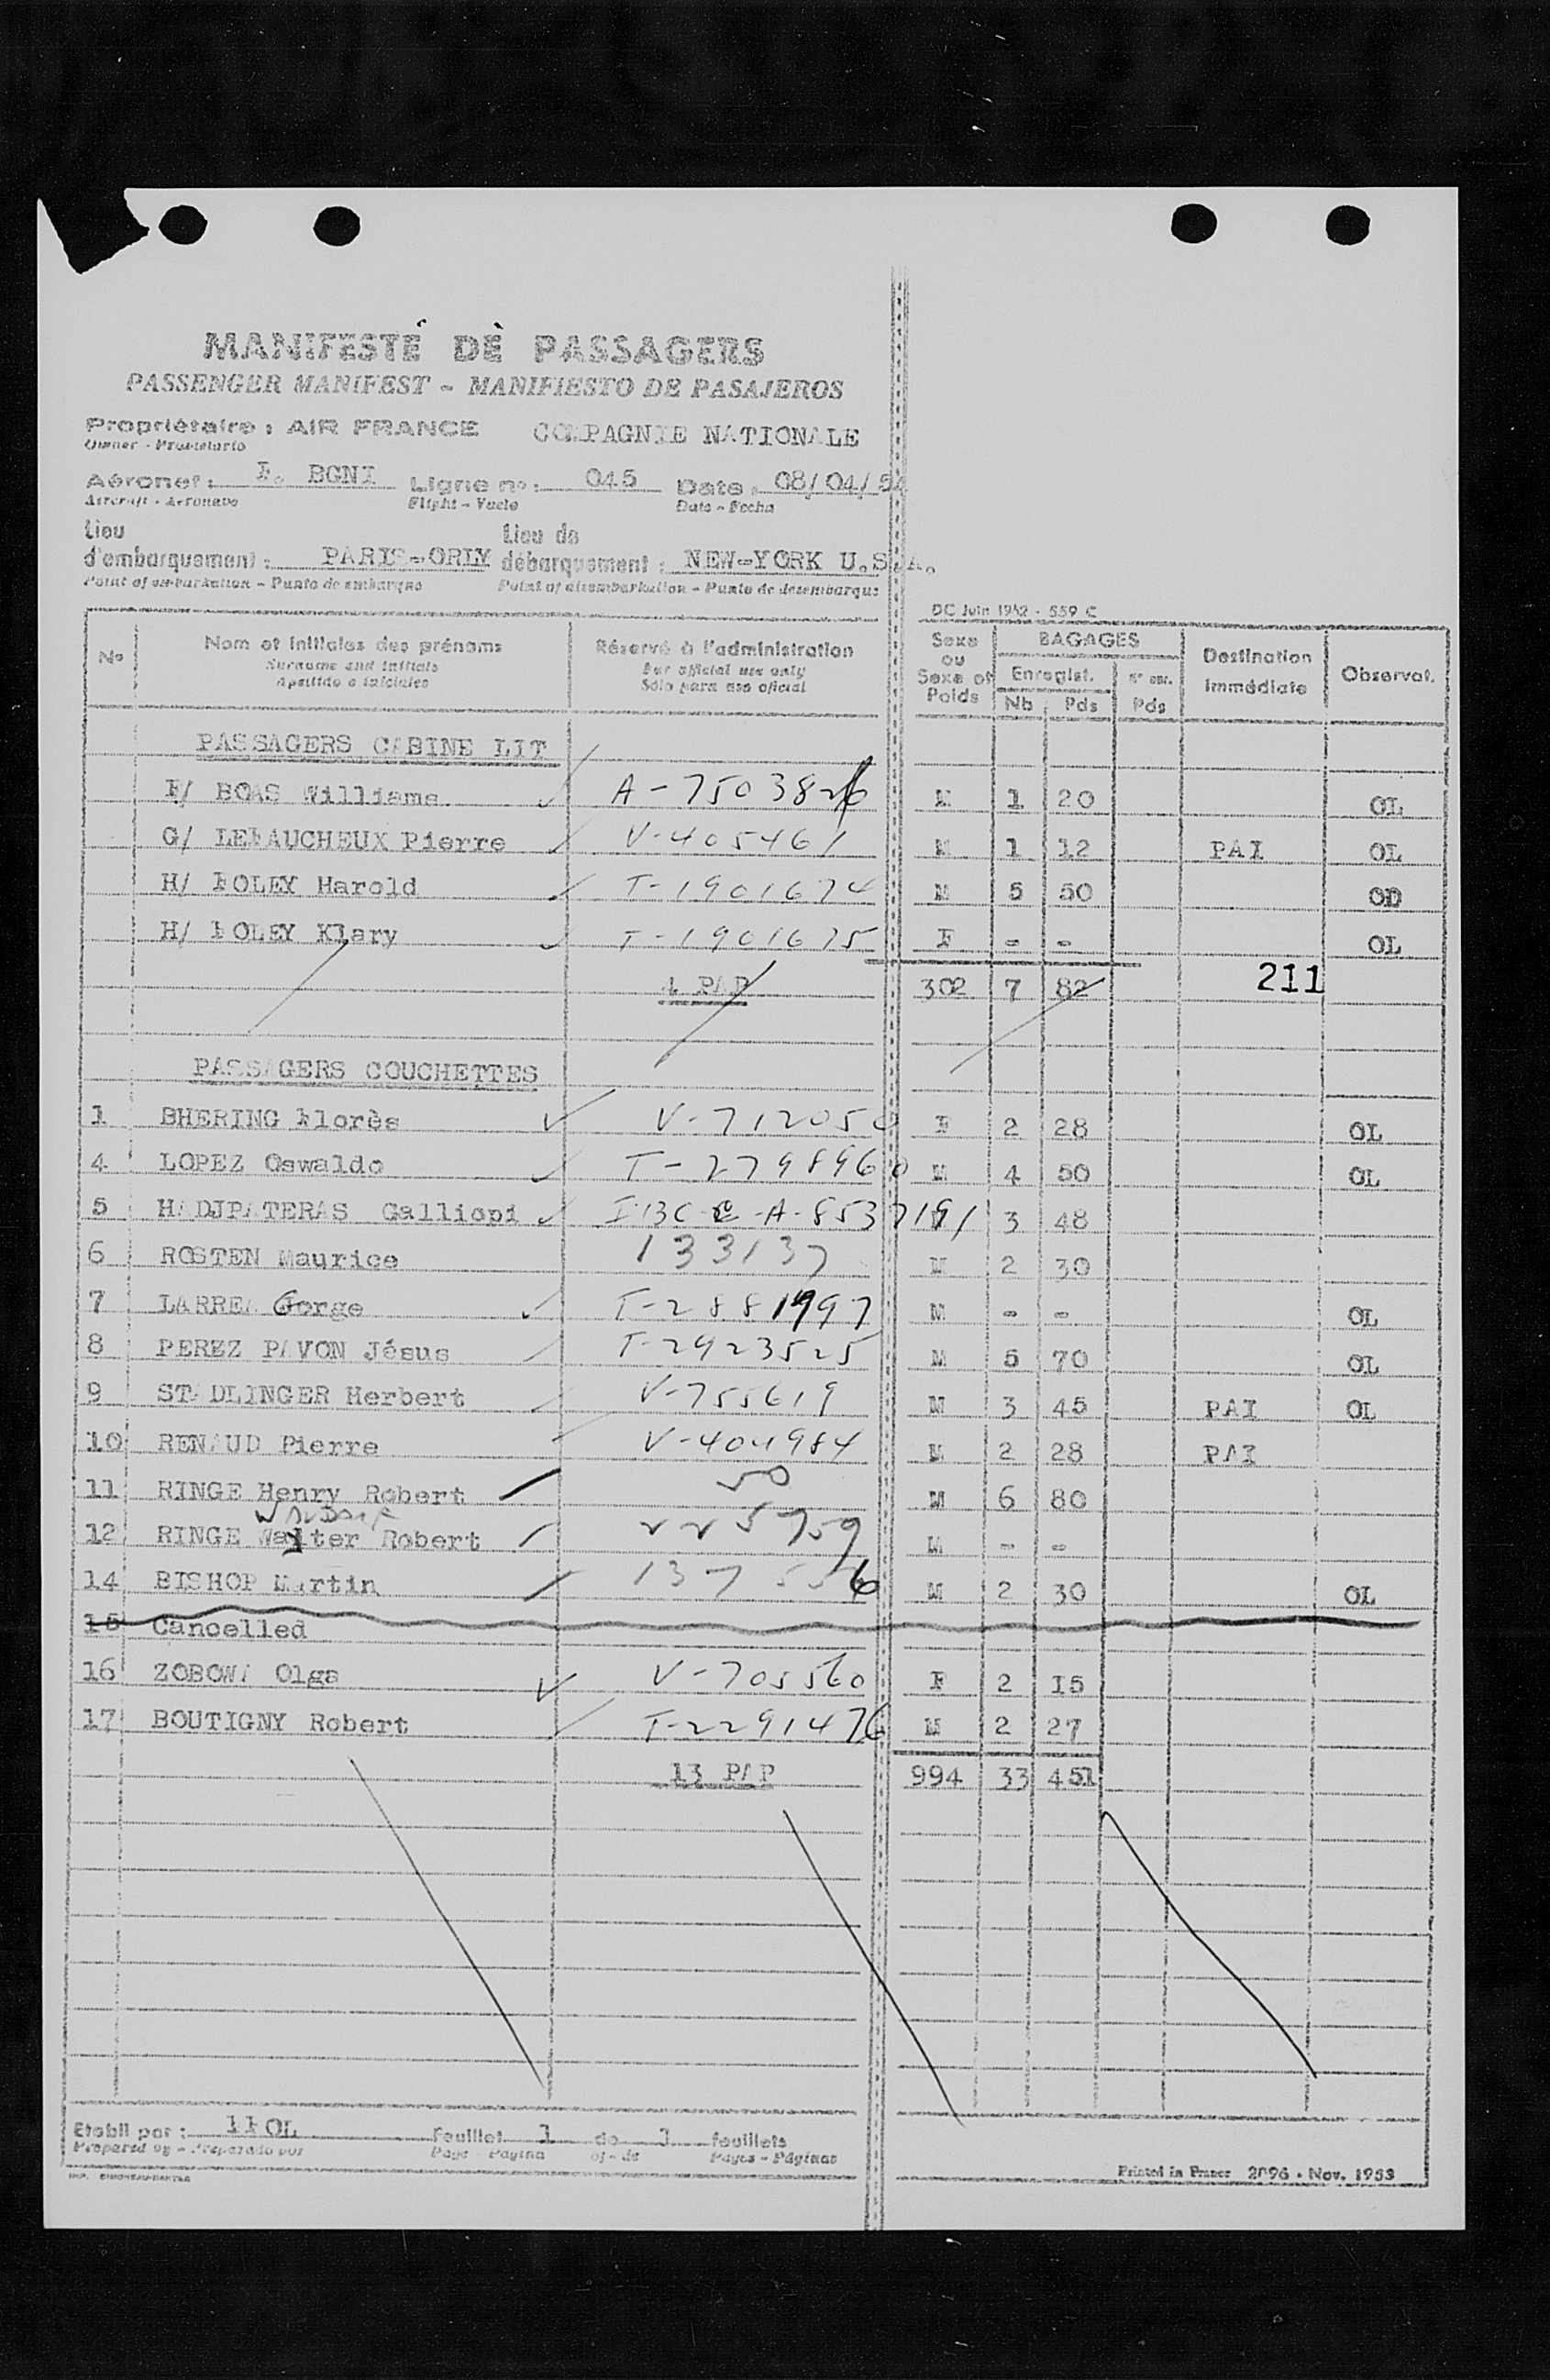 MANIFESTE DE PASSAGERS
PASSENGER MANIFEST - MANIFIESTO DE PASAJEROS
Propriétaire : AIR FRANCE COMPAGNIE NATIONALE
Owner - Propietario
Aéronef : F. BGNI Ligne n° : 045 Date : 08/04/54
Aircraft - Aeronave Flight - Vuelo Date - Fecha
Lieu d'embarquement : PARIS-ORLY Lieu de débarquement : NEW-YORK U.S.A.
Point of embarkation - Punto de embarque Point of disembarkation - Punto de desembarque
DC Juin 1952 - 559 C
N° Nom et initiales des prénoms Réservé à l'administration Sexe ou Sexe et Poids BAGAGES Destination immédiate Observat.
Surname and initials For official use only Enregist. N° enr.
Apellido e iniciales Sólo para uso oficial Nb Pds Pds
PASSAGERS CABINE LIT
F/ BOAS Williams A-7503826 M 1 20 OL
G/ LEFAUCHEUX Pierre V-405461 M 1 12 PAI OL
H/ FOLEY Harold T-1901674 M 5 50 OD
H/ FOLEY Klary T-1901675 F - - OL
4 PAP 302 7 82 211
PASSAGERS COUCHETTES
1 BHERING Florès V-712050 F 2 28 OL
4 LOPEZ Oswaldo T-2798960 M 4 50 OL
5 HADJPATERAS Galliopi I-13C-C-A-853719/ 3 48
6 ROSTEN Maurice 133137 M 2 30
7 LARREA Gorge T-2881997 M - - OL
8 PEREZ PAVON Jésus T-2923525 M 5 70 OL
9 STADLINGER Herbert V-755619 M 3 45 PAI OL
10 RENAUD Pierre V-404984 M 2 28 PAI
11 RINGE Henry Robert 50 M 6 80
12 RINGE Walter Robert 225759 M - -
14 BISHOP Martin 137556 M 2 30 OL
15 Cancelled
16 ZOBOWA Olga V-705560 F 2 15
17 BOUTIGNY Robert T-2291476 M 2 27
13 PAP 994 33 451
Etabli par : FOL Feuillet 1 de 3 feuillets
Prepared by - Preparado por Page - Página of - de Pages - Páginas
Printed in France 2096 - Nov. 1953